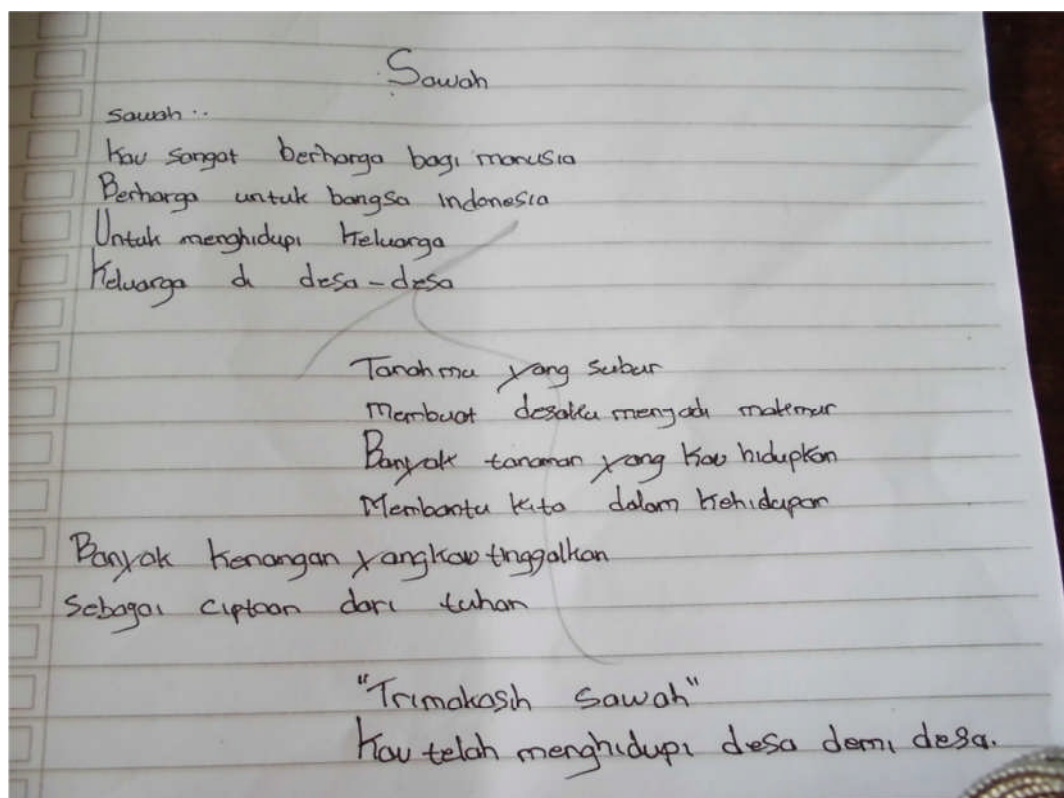 Sawah
Sawah..
Kau sangat berharga bagi manusia
Berharga untuk bangsa indonesia
Untuk menghidupi Keluarga
Keluarga di desa-desa
Tanahmu yang subur
Membuat desaku menjadi makmur
Banyak tanaman yang Kau hidupkan
Membantu Kita dalam Kehidupan
Banyak Kenangan yang kau tinggalkan
Sebagai ciptaan dari tuhan
"Trimakasih sawah"
Kau telah menghidupi desa demi desa.